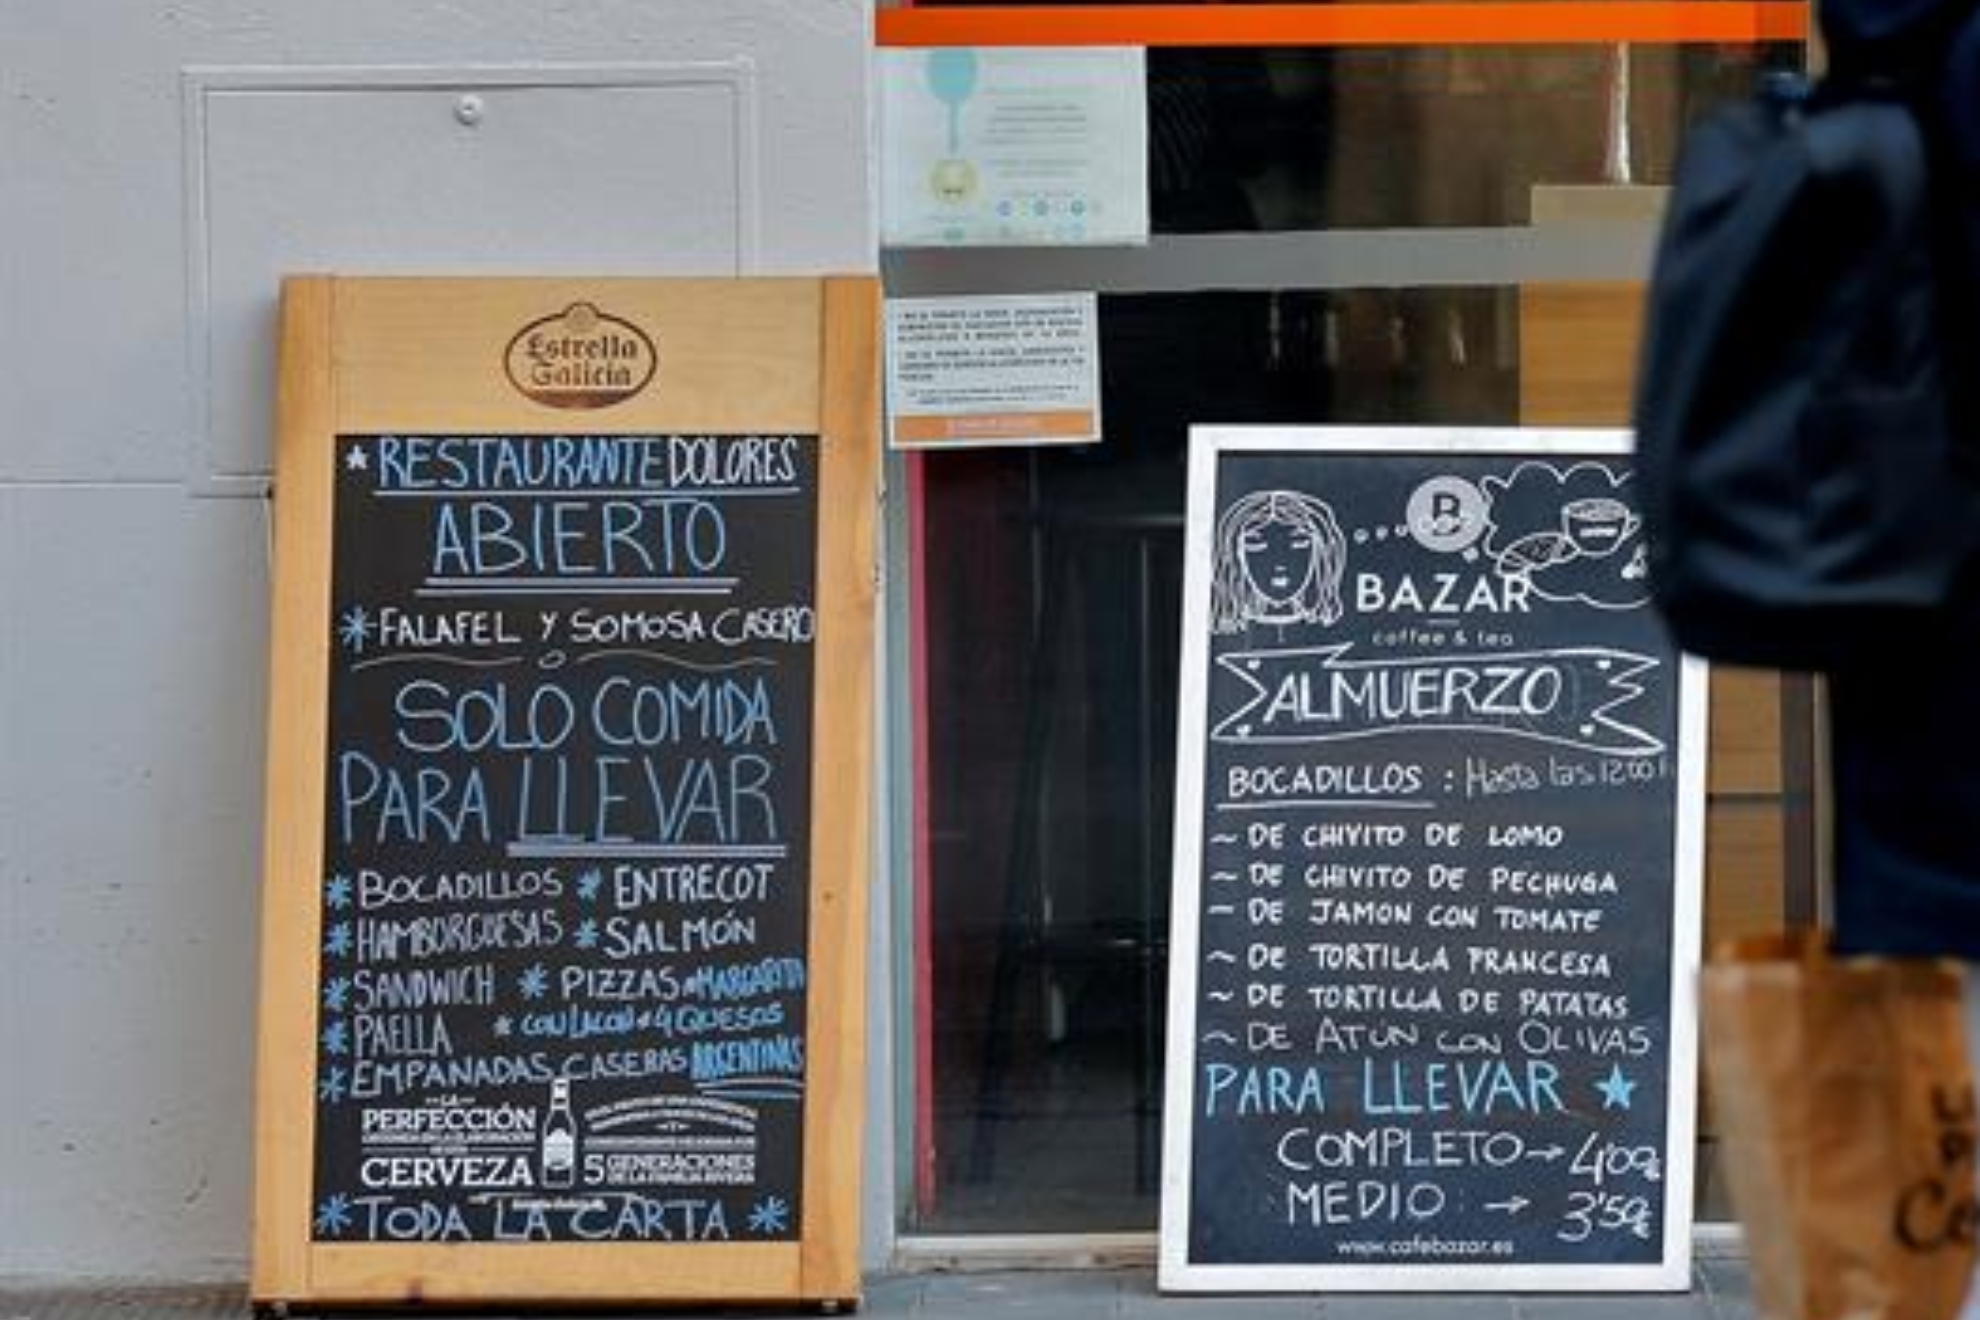 Estrella
Galicia
★ RESTAURANTE DOLORES
ABIERTO
* FALAFEL Y SOMOSA CASERO
SOLO COMIDA
PARA LLEVAR
* BOCADILLOS * ENTRECOT
* HAMBORGUESAS * SALMÓN
* SANDWICH * PIZZAS * MARGARITA
* PAELLA * CON LACON * 4 QUESOS
* EMPANADAS CASERAS ARGENTINAS
LA
PERFECCIÓN
CERVEZA
5 GENERACIONES
DE LA FAMILIA RIVERA
* TODA LA CARTA *
B
BAZAR
coffee & tea
ALMUERZO
BOCADILLOS : Hasta las 12:00 h
~ DE CHIVITO DE LOMO
~ DE CHIVITO DE PECHUGA
~ DE JAMON CON TOMATE
~ DE TORTILLA FRANCESA
~ DE TORTILLA DE PATATAS
~ DE ATUN CON OLIVAS
PARA LLEVAR ★
COMPLETO → 4'00€
MEDIO → 3'50€
www.cafebazar.es